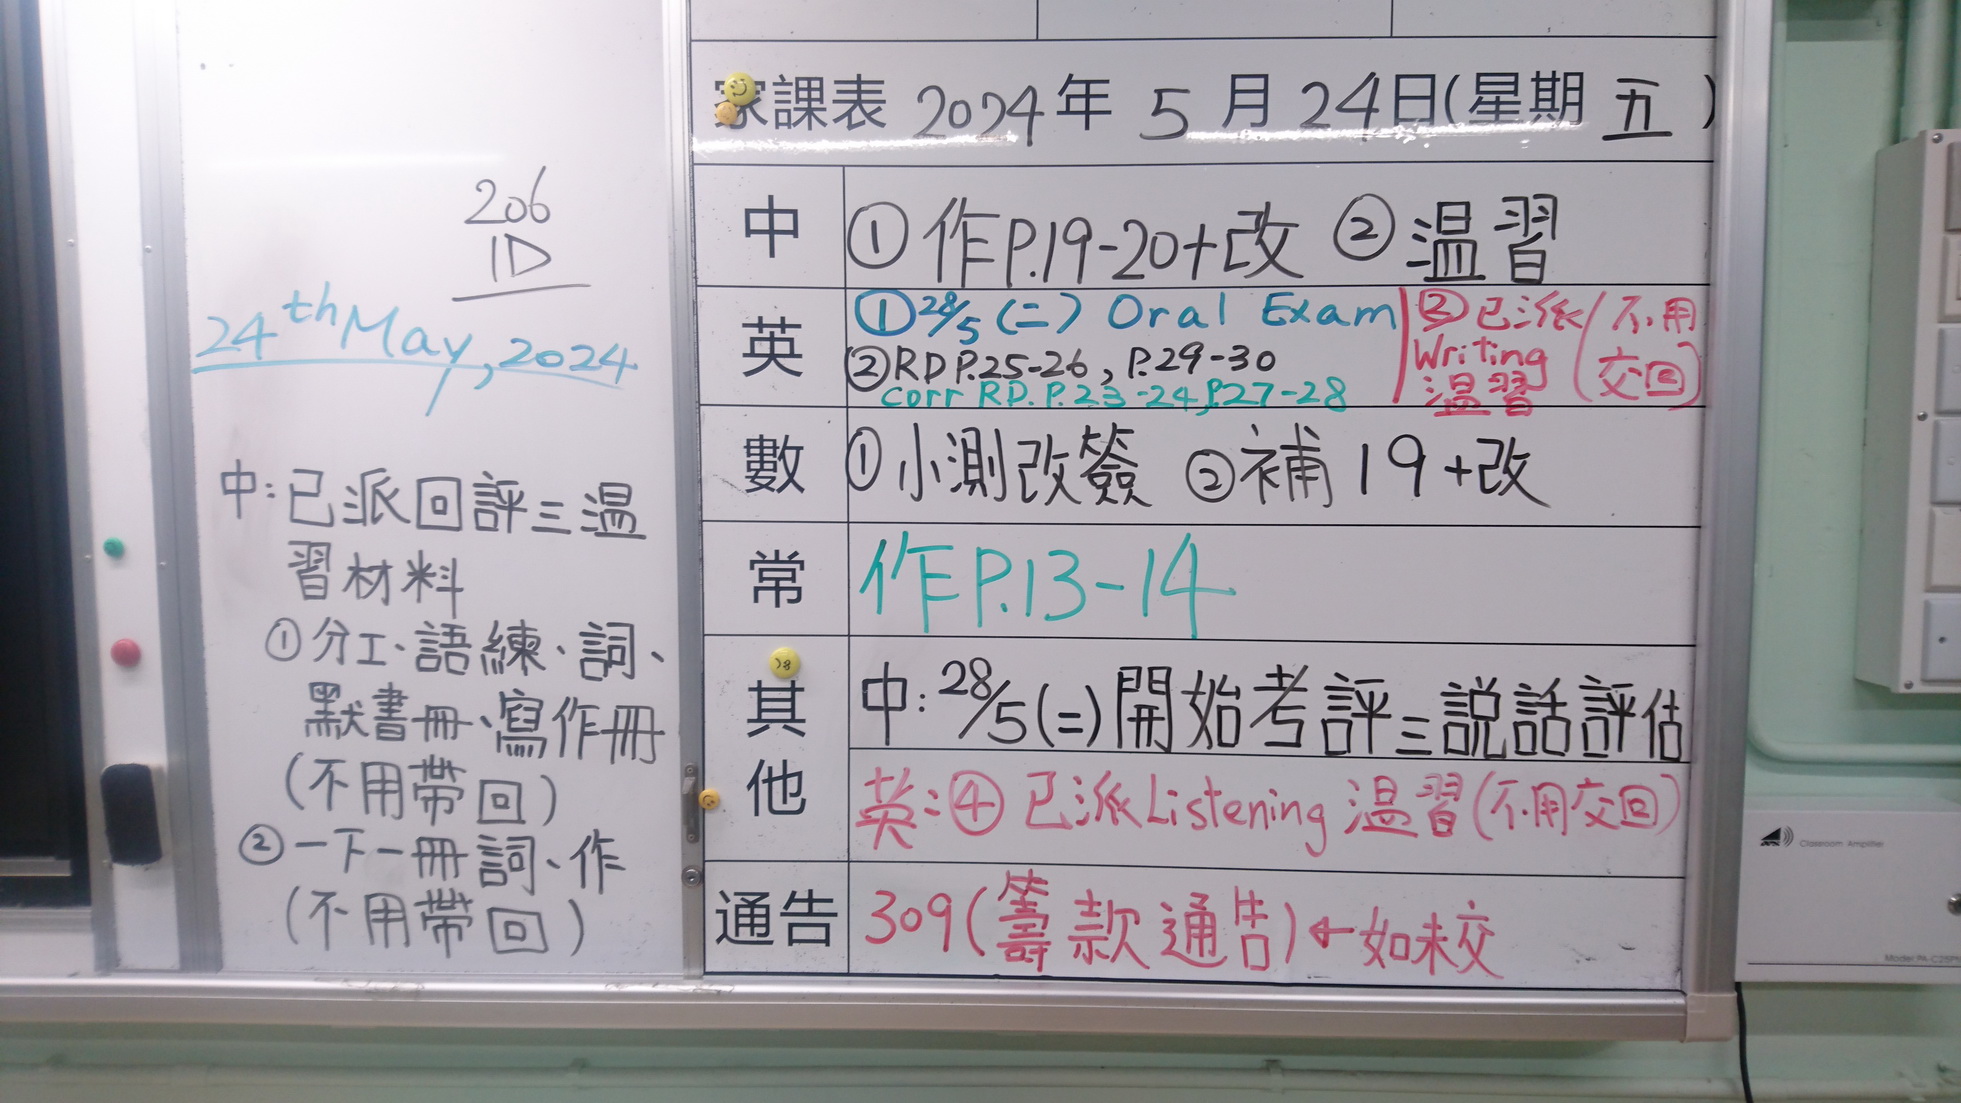 206
1D
24th May, 2024
中:已派回評三温
習材料
①分工、語練、詞、
默書冊、寫作冊
(不用帶回)
②一下一冊詞、作
(不用帶回)
家課表 2024年 5月 24日(星期 五)
中 ①作P.19-20+改 ②温習
英 ①28/5 (二) Oral Exam
②RD P.25-26, P.29-30
corr RD. P.23-24, P.27-28
③已派
Writing
温習
(不用
交回)
數 ①小測改簽 ②補19+改
常 作P.13-14
其他 中:28/5(二)開始考評三説話評估
英:④已派Listening温習(不用交回)
通告 309(籌款通告)←如未交
Classroom Amplifier